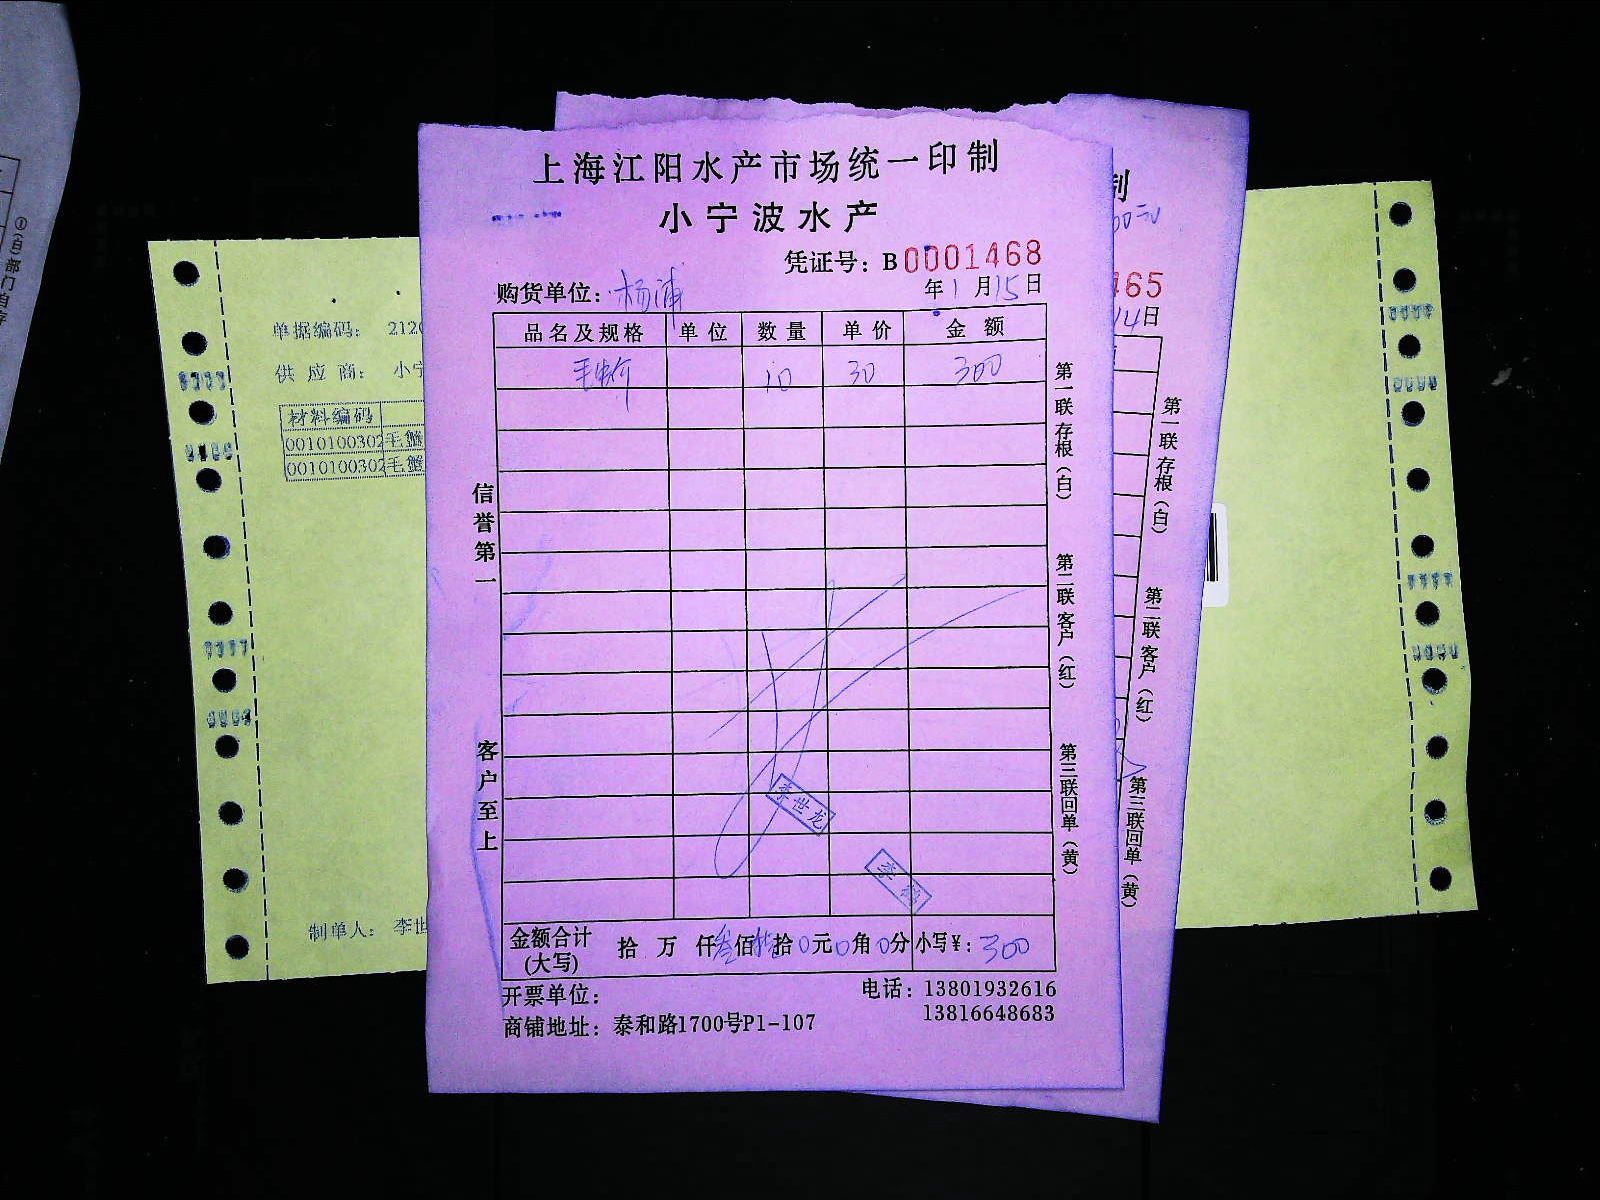 上海江阳水产市场统一印制
小宁波水产
凭证号：B 0001468
购货单位：杨浦
年1月15日
品名及规格 单位 数量 单价 金额
10 30 300
第一联存根（白）
第二联客户（红）
第三联回单（黄）
信誉第一
客户至上
李世龙
金额合计(大写) 拾 万 仟叁佰 拾0元0角0分 小写￥：300
开票单位：
电话：13801932616
13816648683
商铺地址：泰和路1700号P1-107
制
465
14日
第一联存根（白）
第二联客户（红）
第三联回单（黄）
单据编码： 212
供应商： 小宁
材料编码
0010100302 毛蟹
0010100302 毛蟹
制单人： 李世
①(白)部门自存